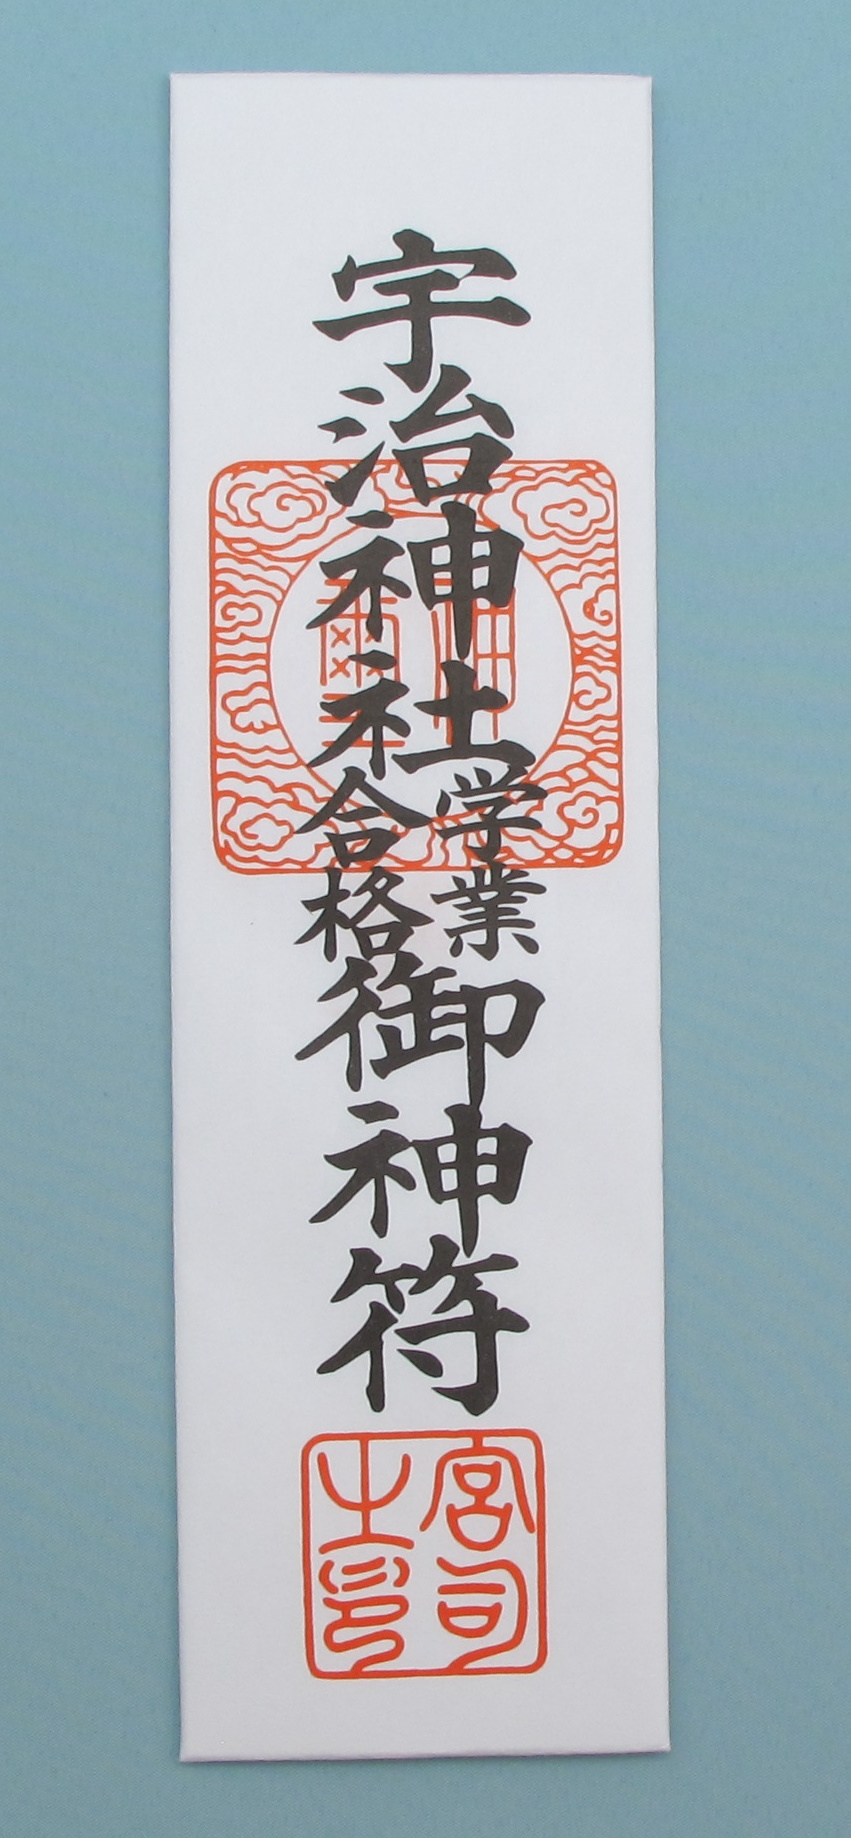 宇治神社
学業
合格
御神符
宮司
之印